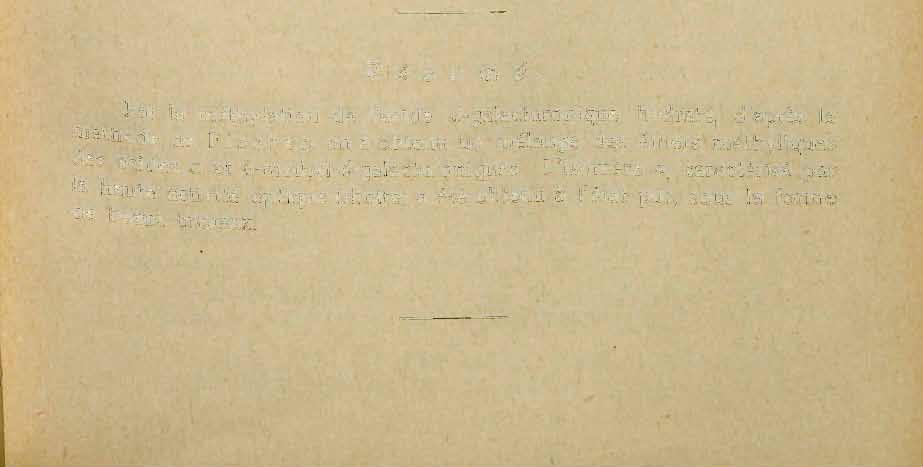 Résumé.
Par la méthylation de l'acide d-galacturonique hydraté, d'après la
méthode de Fischer, on a obtenu un mélange des éthers méthyliques
des acides α et galacturoniques. L'isomère α, caractérisé par
la haute activité optique a été obtenu à l'état pur, sous la forme
de